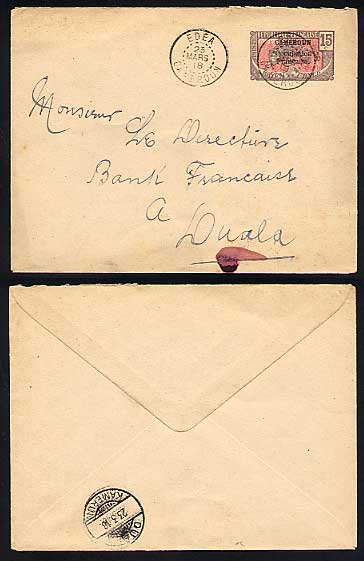 EDEA
23
MARS
18
CAMEROUN
REPUBLIQUE FRANCAISE
15
CAMEROUN
Occupation
Française
Monsieur
Le Directeur
Bank Francaise
A
Duala
DUALA
23.3.18
KAMERUN